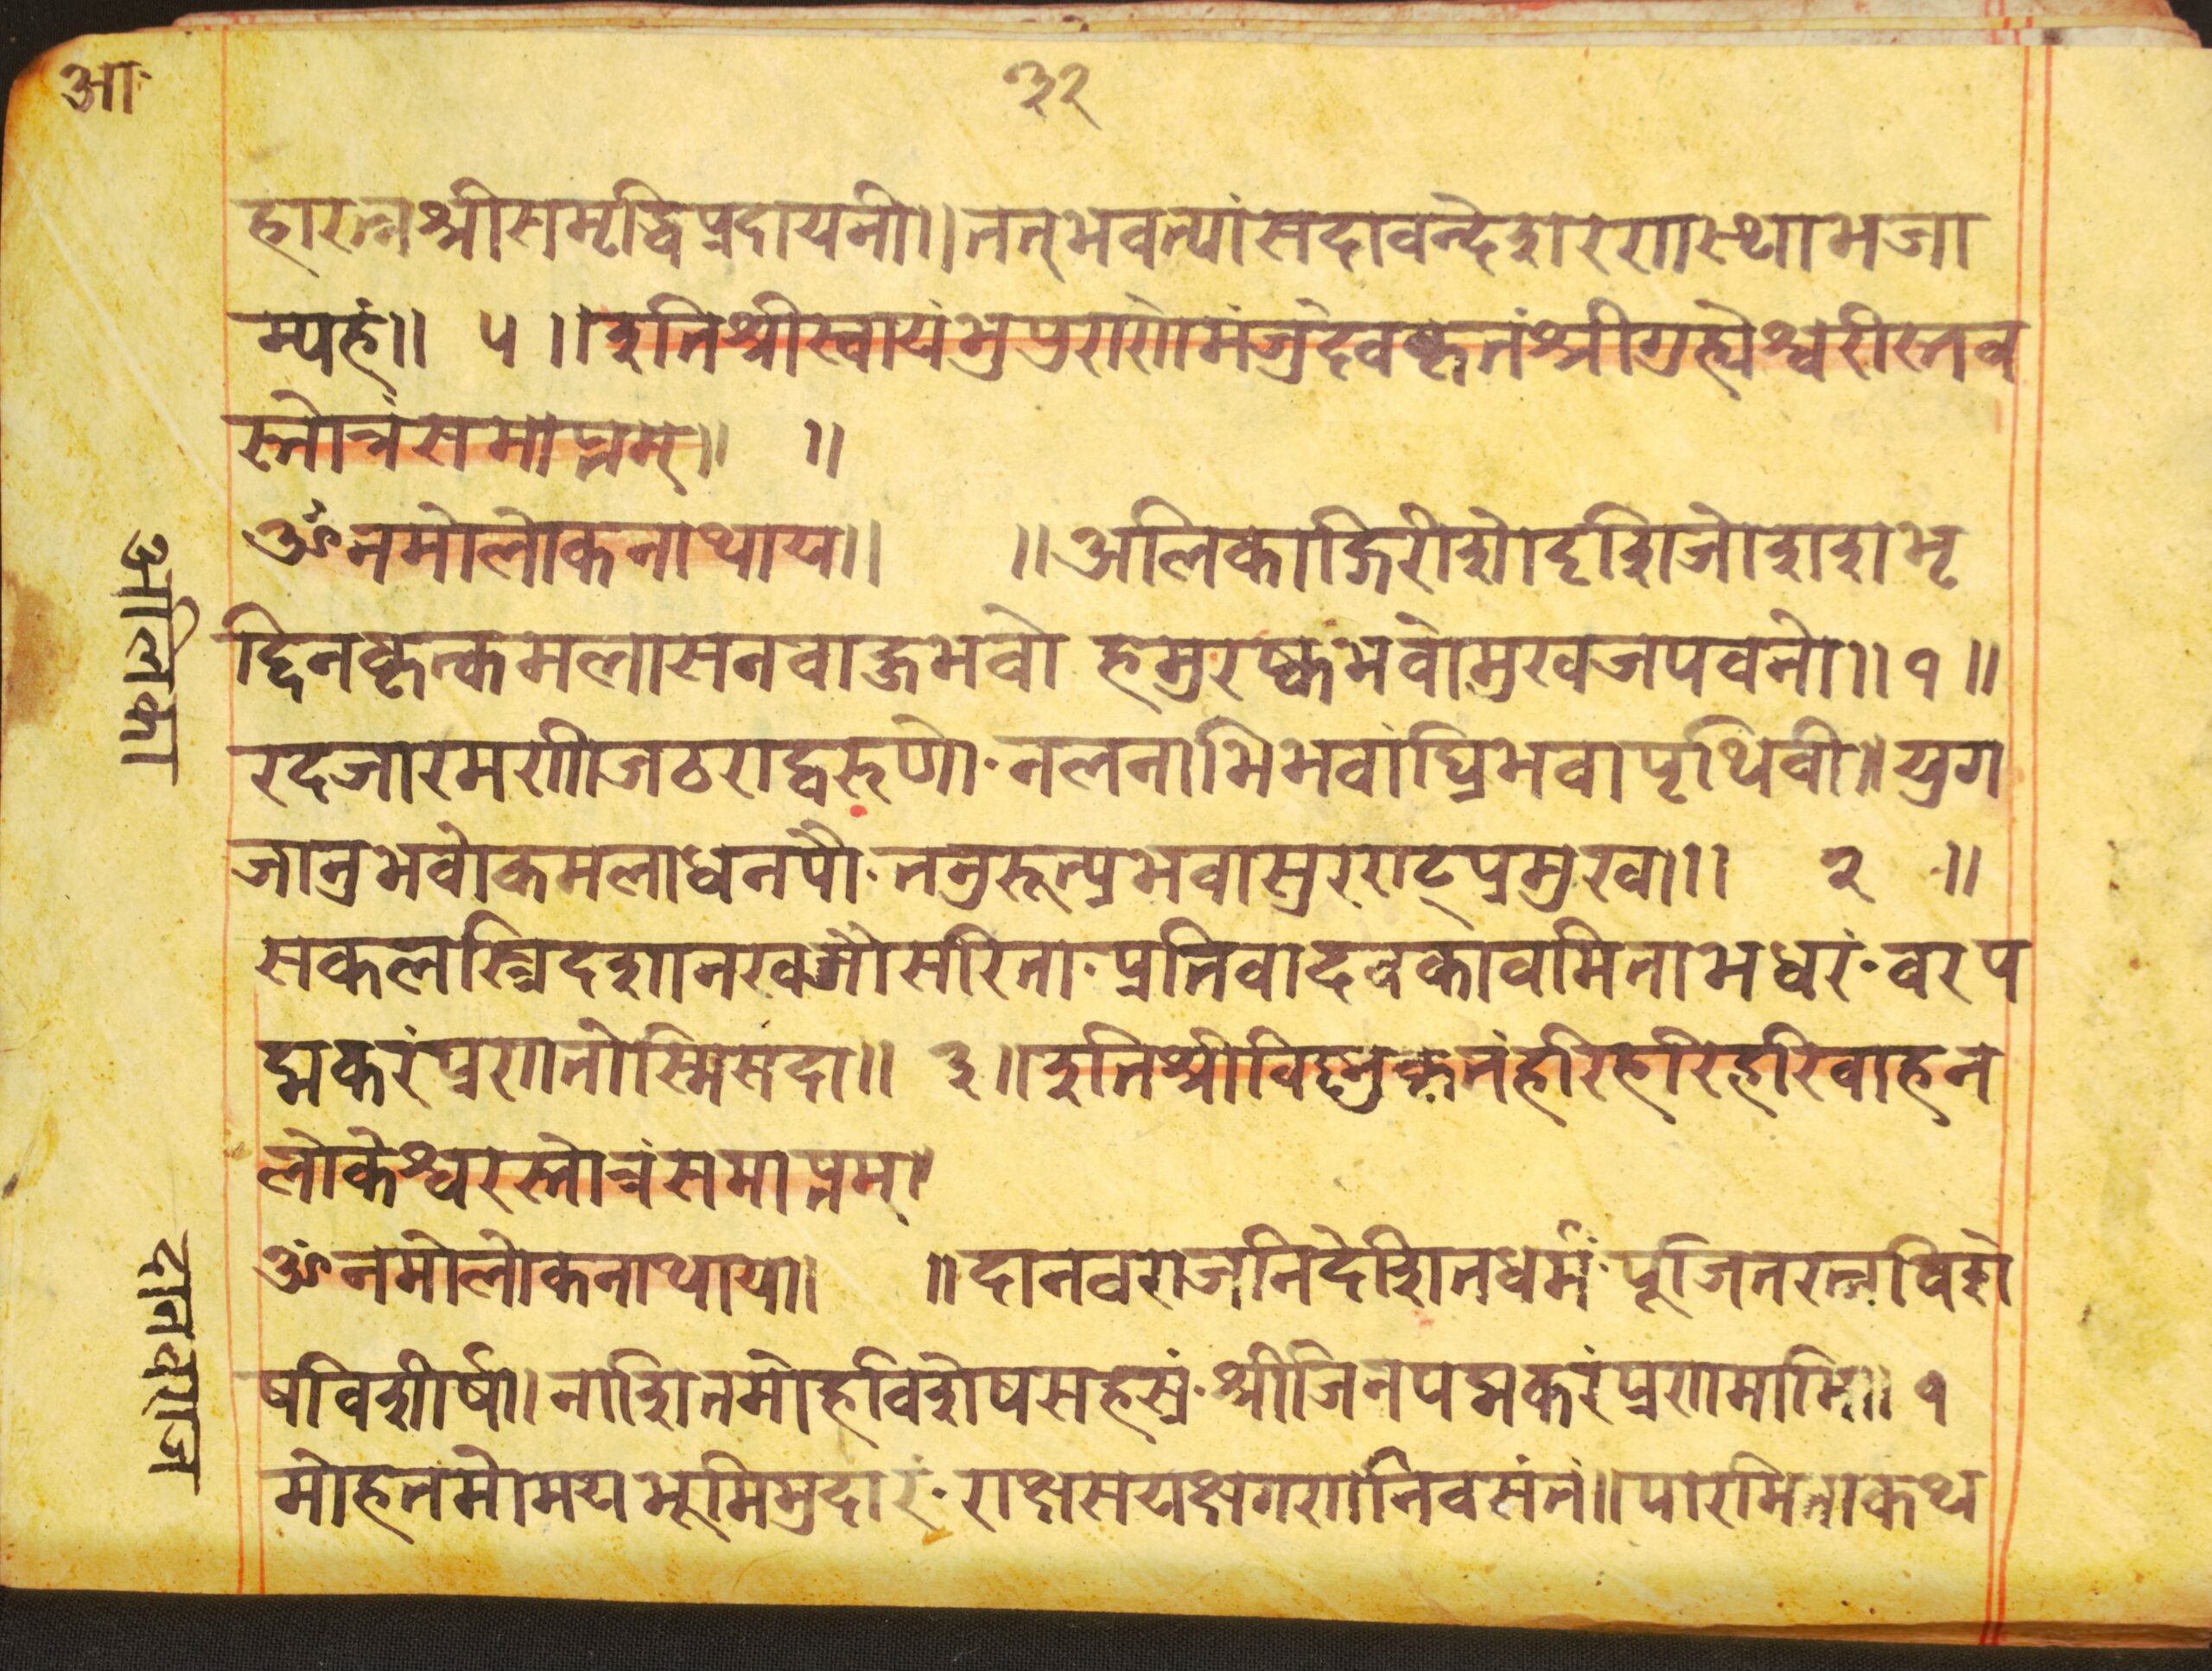 आ
३२
हारत्नश्रीसमृद्धिप्रदायनी॥तत्भवत्यांसदावन्देशरणास्थाभजा
म्यहं॥ ५ ॥इतिश्रीस्वायंभुपुराणेमंजुदेवकृतंश्रीगुह्येश्वरीस्तव
स्तोत्रंसमाप्तम्॥ ॥
ॐनमोलोकनाथाय॥ ॥अलिकाङ्गिरीशोदृशिजोशशभृ
द्दिनकृत्कमलासनवाद्धभवो हमुरष्कभवोमुखजपवनो॥१॥
रदजारमणीजठराद्वरुणो·नलनाभिभवांघ्रिभवापृथिवी॥युग
जानुभवोकमलाधनपौ·तनुरूत्प्रभवासुरराट्प्रमुखा॥ २ ॥
सकलस्त्रिदशानखगौसरिता·प्रतिवादवकावमिताभधरं·वरप
द्मकरंप्रणतोस्मिसदा॥ ३॥इतिश्रीविष्नुकृतंहरिहरिहरिवाहन
लोकेश्वरस्तोत्रंसमाप्तम्॥
ॐनमोलोकनाथाय॥ ॥दानवराजनिदेशितधर्मं·पूजितरत्नविशे
षविशीर्ष॥नाशितमोहविशेषसहस्रं·श्रीजिनपद्मकरंप्रणमामि॥१
मोहतमोमयभूमिमुदारं·राक्षसयक्षगणानिवसंतं॥पारमिताकथ
अलिका
दानवराज